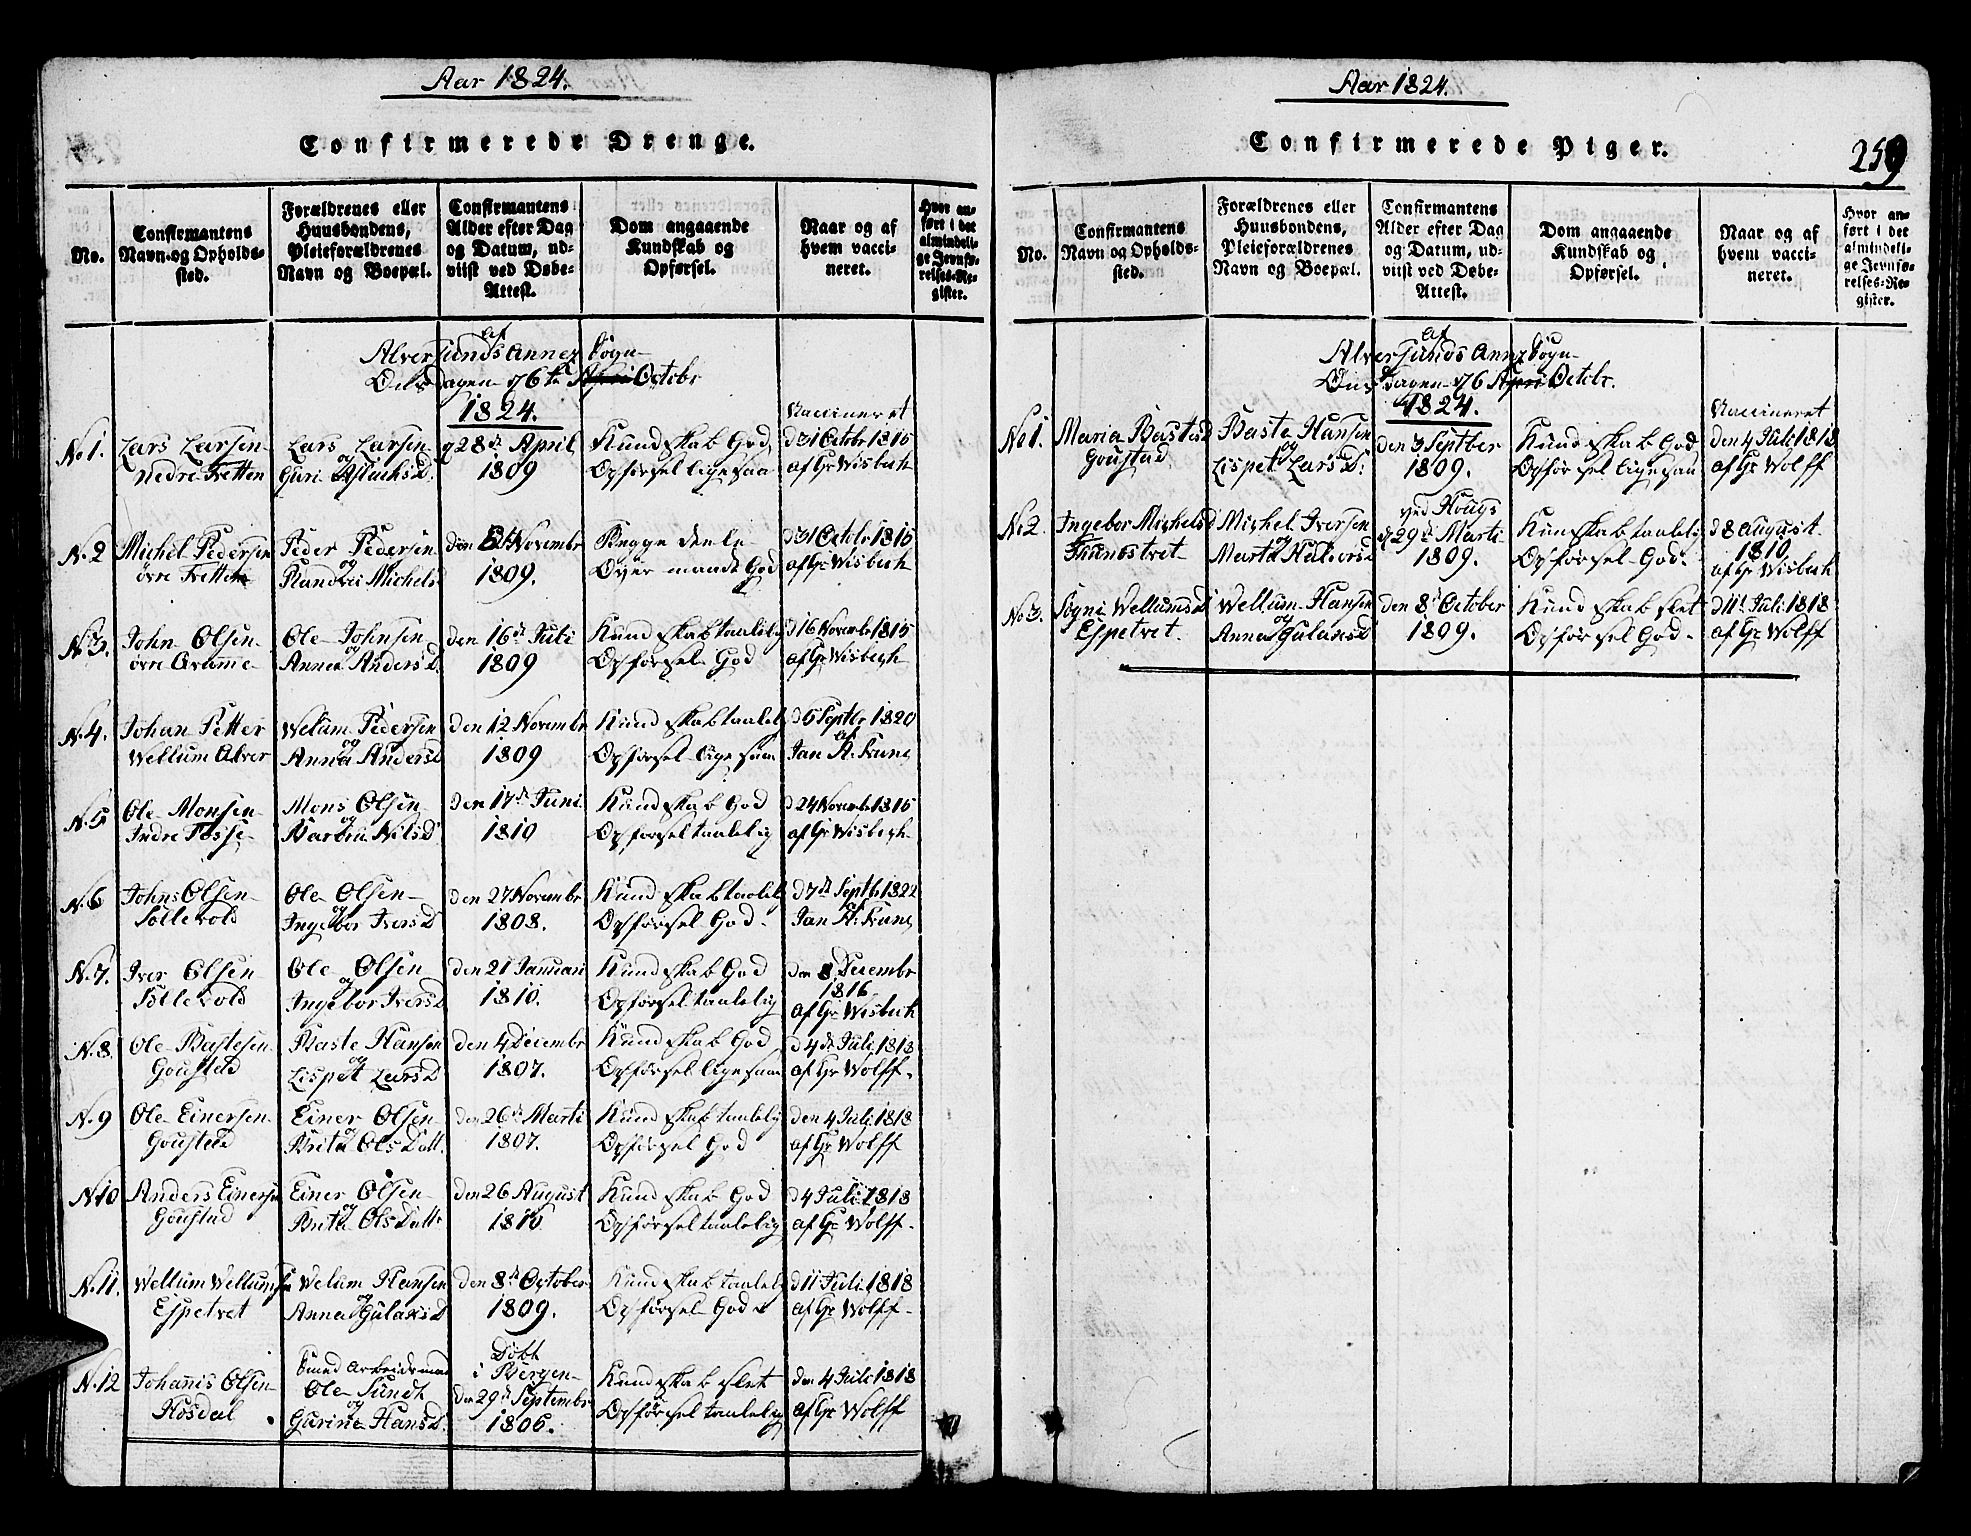 Aar 1824.
Confirmerede Drenge.
No.
Confirmantens
Navn og Opholds-
sted.
Forældrenes eller
Huusbondens,
Pleieforældrenes
Navn og Boepæl.
Confirmantens
Alder efter Dag
og Datum, ud-
viist ved Døbe-
Attest.
Dom angaaende
Kundskab og
Opførsel.
Naar og af
hvem vacci-
neret.
Hvor an-
ført i det
almindeli-
ge Jevnfø-
relses-Re-
gister.
af
Alversunds Annex Sogn
Octobr
1824.
No 1.
Lars Larsen
Nedre Fretten
Lars Larsen
og
Guri AslachsD.
28de April
1809
Kundskab God
Opførsel ligesaa
Vaccineret
d 31 Octobr 1815
af Hr Wisbech
No 2
Michel Pedersen
øvre Fretten
Peder Pedersen
og
Randvei MichelsD
den Novembr
1809.
Begge Dele
Over maade God
d 31 Octobr 1815
af Hr Wisbech
No 3.
John Olsen
øvre Qvamme
Ole Johnsen
og
Anna AndersD.
den 16de Juli
1809
Kundskab taalelig
Opførsel God
d 16 Novembr 1815
af Hr Wisbech
No 4.
Johan Petter
Wellum Alver
Welum Pedersen
og
Anna AndersD
den 12 Novembr
1809
Kundskab taalelig
Opførsel ligesaa
d 6 Septbr 1820
af
Jan H. Krung
No 5
Ole Monsen
Indre Fosse
Mons Olsen
og
Barbru NilsD
den 17de Juni
1810
Kundskab God
Opførsel taalelig
d 24 Novembr 1815
af Hr Wisbech
No 6
Johns Olsen
Tollevold
Ole Olsen
og
Ingebor IversD
den 27 Novembr
1808.
Kundskab taalelig
Opførsel God.
d 7de Septb 1822
af
Jan H. Krung
No 7.
Iver Olsen
Tollevold
Ole Olsen
og
Ingebor IversD
den 21 Januari
1810.
Kundskab God
Opførsel taalelig
den 8 Decembr
1816
af Hr Wisbech
No 8.
Ole Bastesen
Goustad
Baste Hansen
og
Lispet LarsD
den 4 Decembr
1807.
Kundskab God
Opførsel ligesaa
d 4de Juli 1818
af Hr Wolff.
No 9
Ole Einersen
Goustad
Einer Olsen
og
Brita OlsDatt.
den 26de Marti
1807.
Kundskab taalelig
Opførsel God
den 4 Juli 1818
af Hr Wolff
No 10
Anders Einersen
Goustad
Einer Olsen
og
Brita OlsDatt
den 26 August
1810
Kundskab God
Opførsel taalelig
d 4 Juli 1818
af Hr Wolff.
No 11.
Wellum Wellumsen
Espetvet
Welum Hansen
og
Anna GulaksD
den 8de October
1809.
Kundskab taalelig
Opførsel God
d 11 Juli 1818
af Hr Wolff.
No 12
Johanis Olsen
Hosdal
Smed arbeidsmand
Ole Sundt
og
Gurine HansD.
Døbt
i Bergen
den 29de Septembr
1806.
Kundskab slet
Opførsel taalelig
den 4 Juli 1818
af Hr Wolff
Aar 1824.
Confirmerede Piger.
259
No.
Confirmantens
Navn og Opholds-
sted.
Forældrenes eller
Huusbondens,
Pleieforældrenes
Navn og Boepæl.
Confirmantens
Alder efter Dag
og Datum, ud-
viist ved Døbe-
Attest.
Dom angaaende
Kundskab og
Opførsel.
Naar og af
hvem vacci-
neret.
Hvor an-
ført i det
almindeli-
ge Jevnfø-
relses-Re-
gister.
af
Alversunds Annex Sogn
Octobr.
1824.
No 1.
Maria BasteesD
Goustad
Baste Hansen
og
Lispet LarsD.
den 3 Septber
1809.
Kundskab God
Opførsel ligesaa
Vaccineret
den 4 Juli 1818
af Hr Wolff
No 2.
Ingebor MichelsD
Michel Iversen
og
Marta HalversD
ved Hougs
d 29de Marti
1809.
Kunskab taalelig
Opførsel God.
d 8 august
1810.
af Hr Wisbech
No 3.
Sygni WellumsD
Espetvet.
Wellum Hansen
og
Anna GulaksD
den 8de October
1809.
Kundskab slet
Opførsel God
d 11te Juli 1818
af Hr Wolff